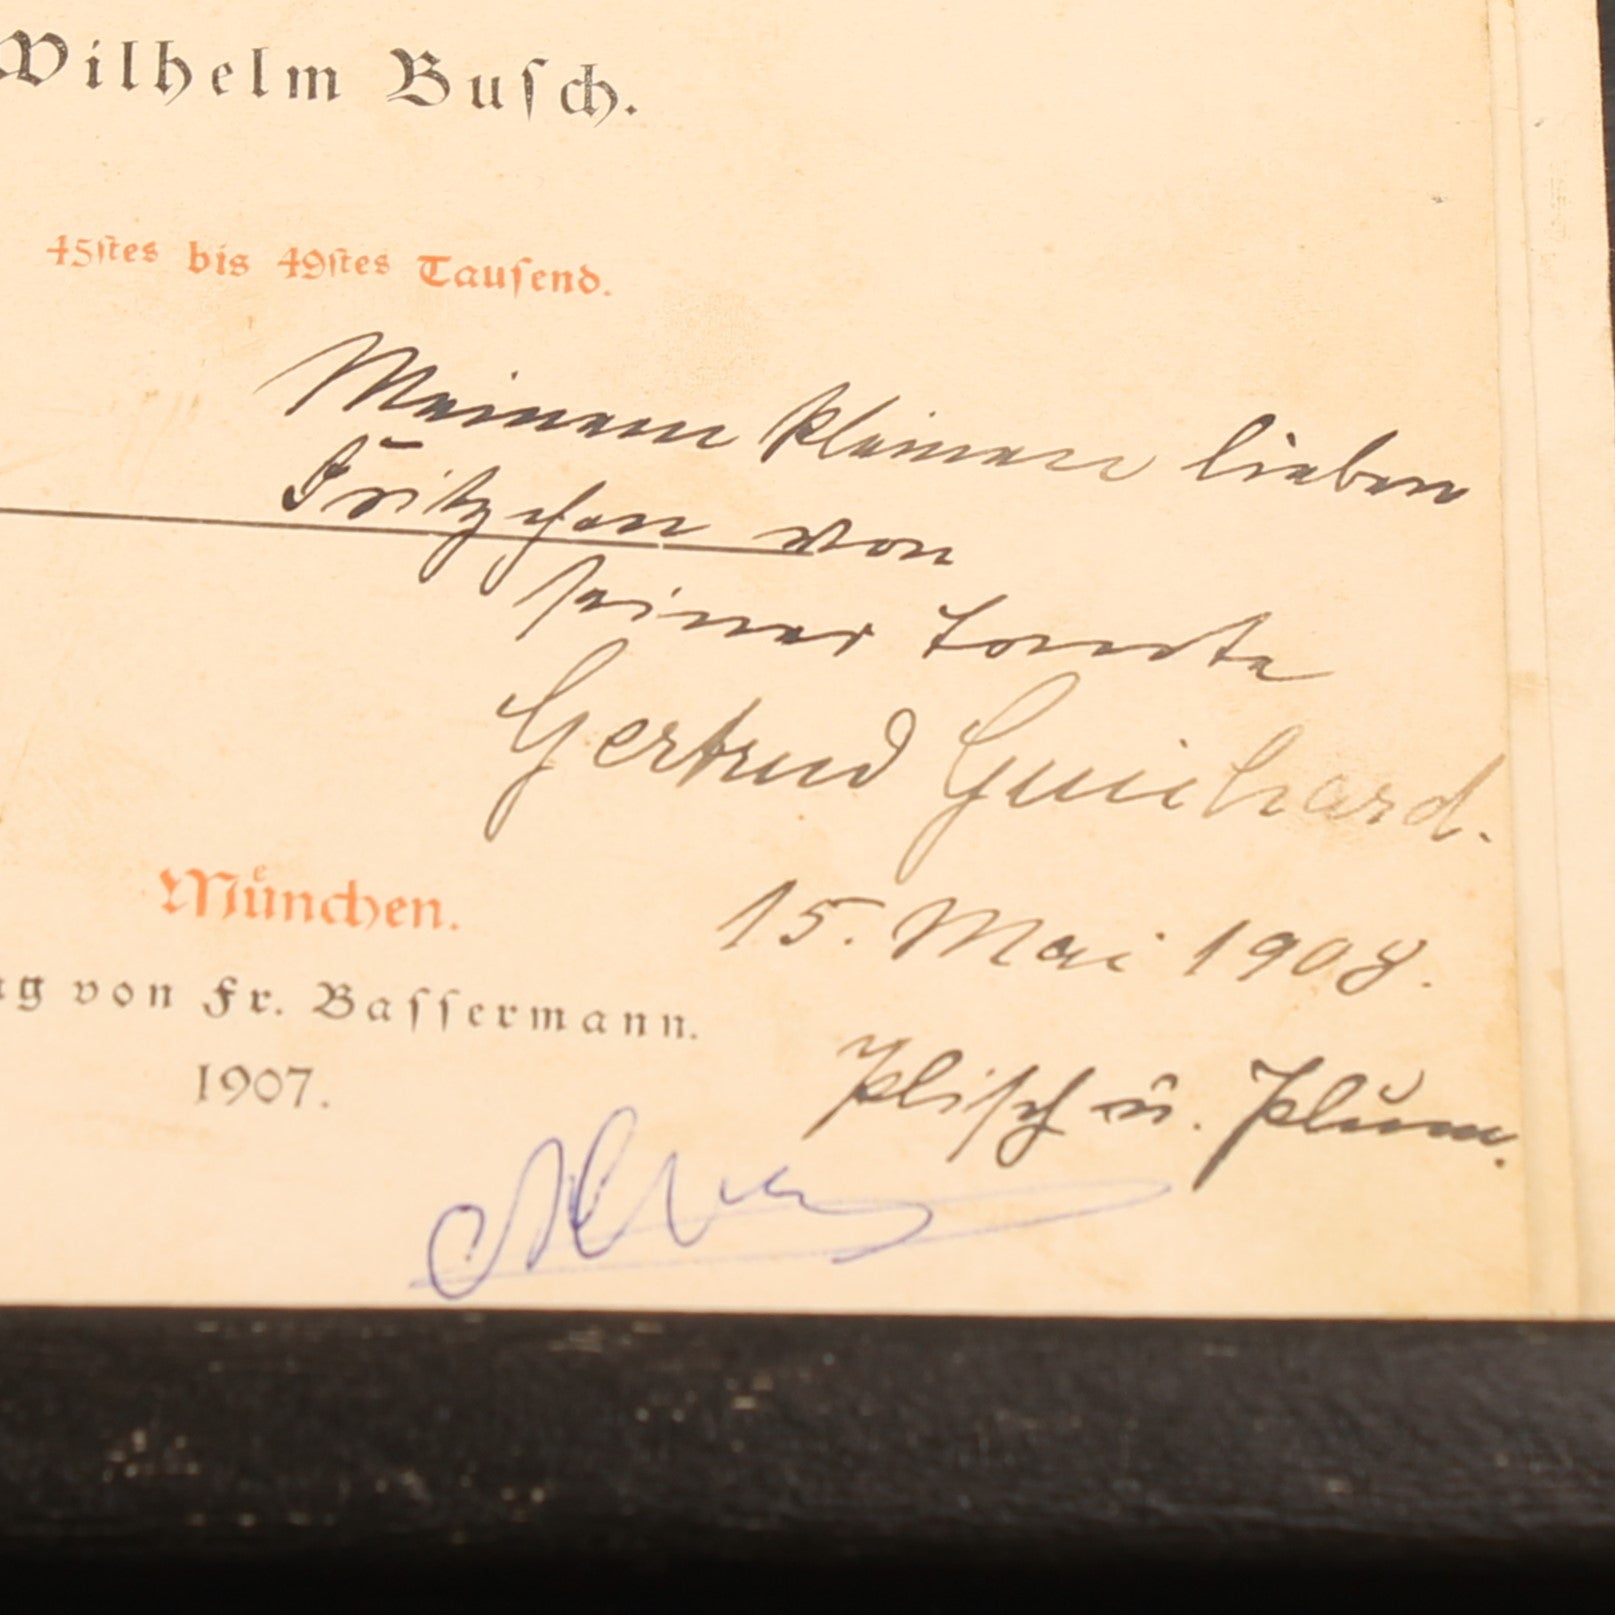 Wilhelm Busch.
45stes bis 49stes Tausend.
Meinem kleinen lieben
Fritzchen von
seiner Tante
Gertrud Guichard.
München.
15. Mai 1908.
von Fr. Bassermann.
1907.
Plisch u. Plum.